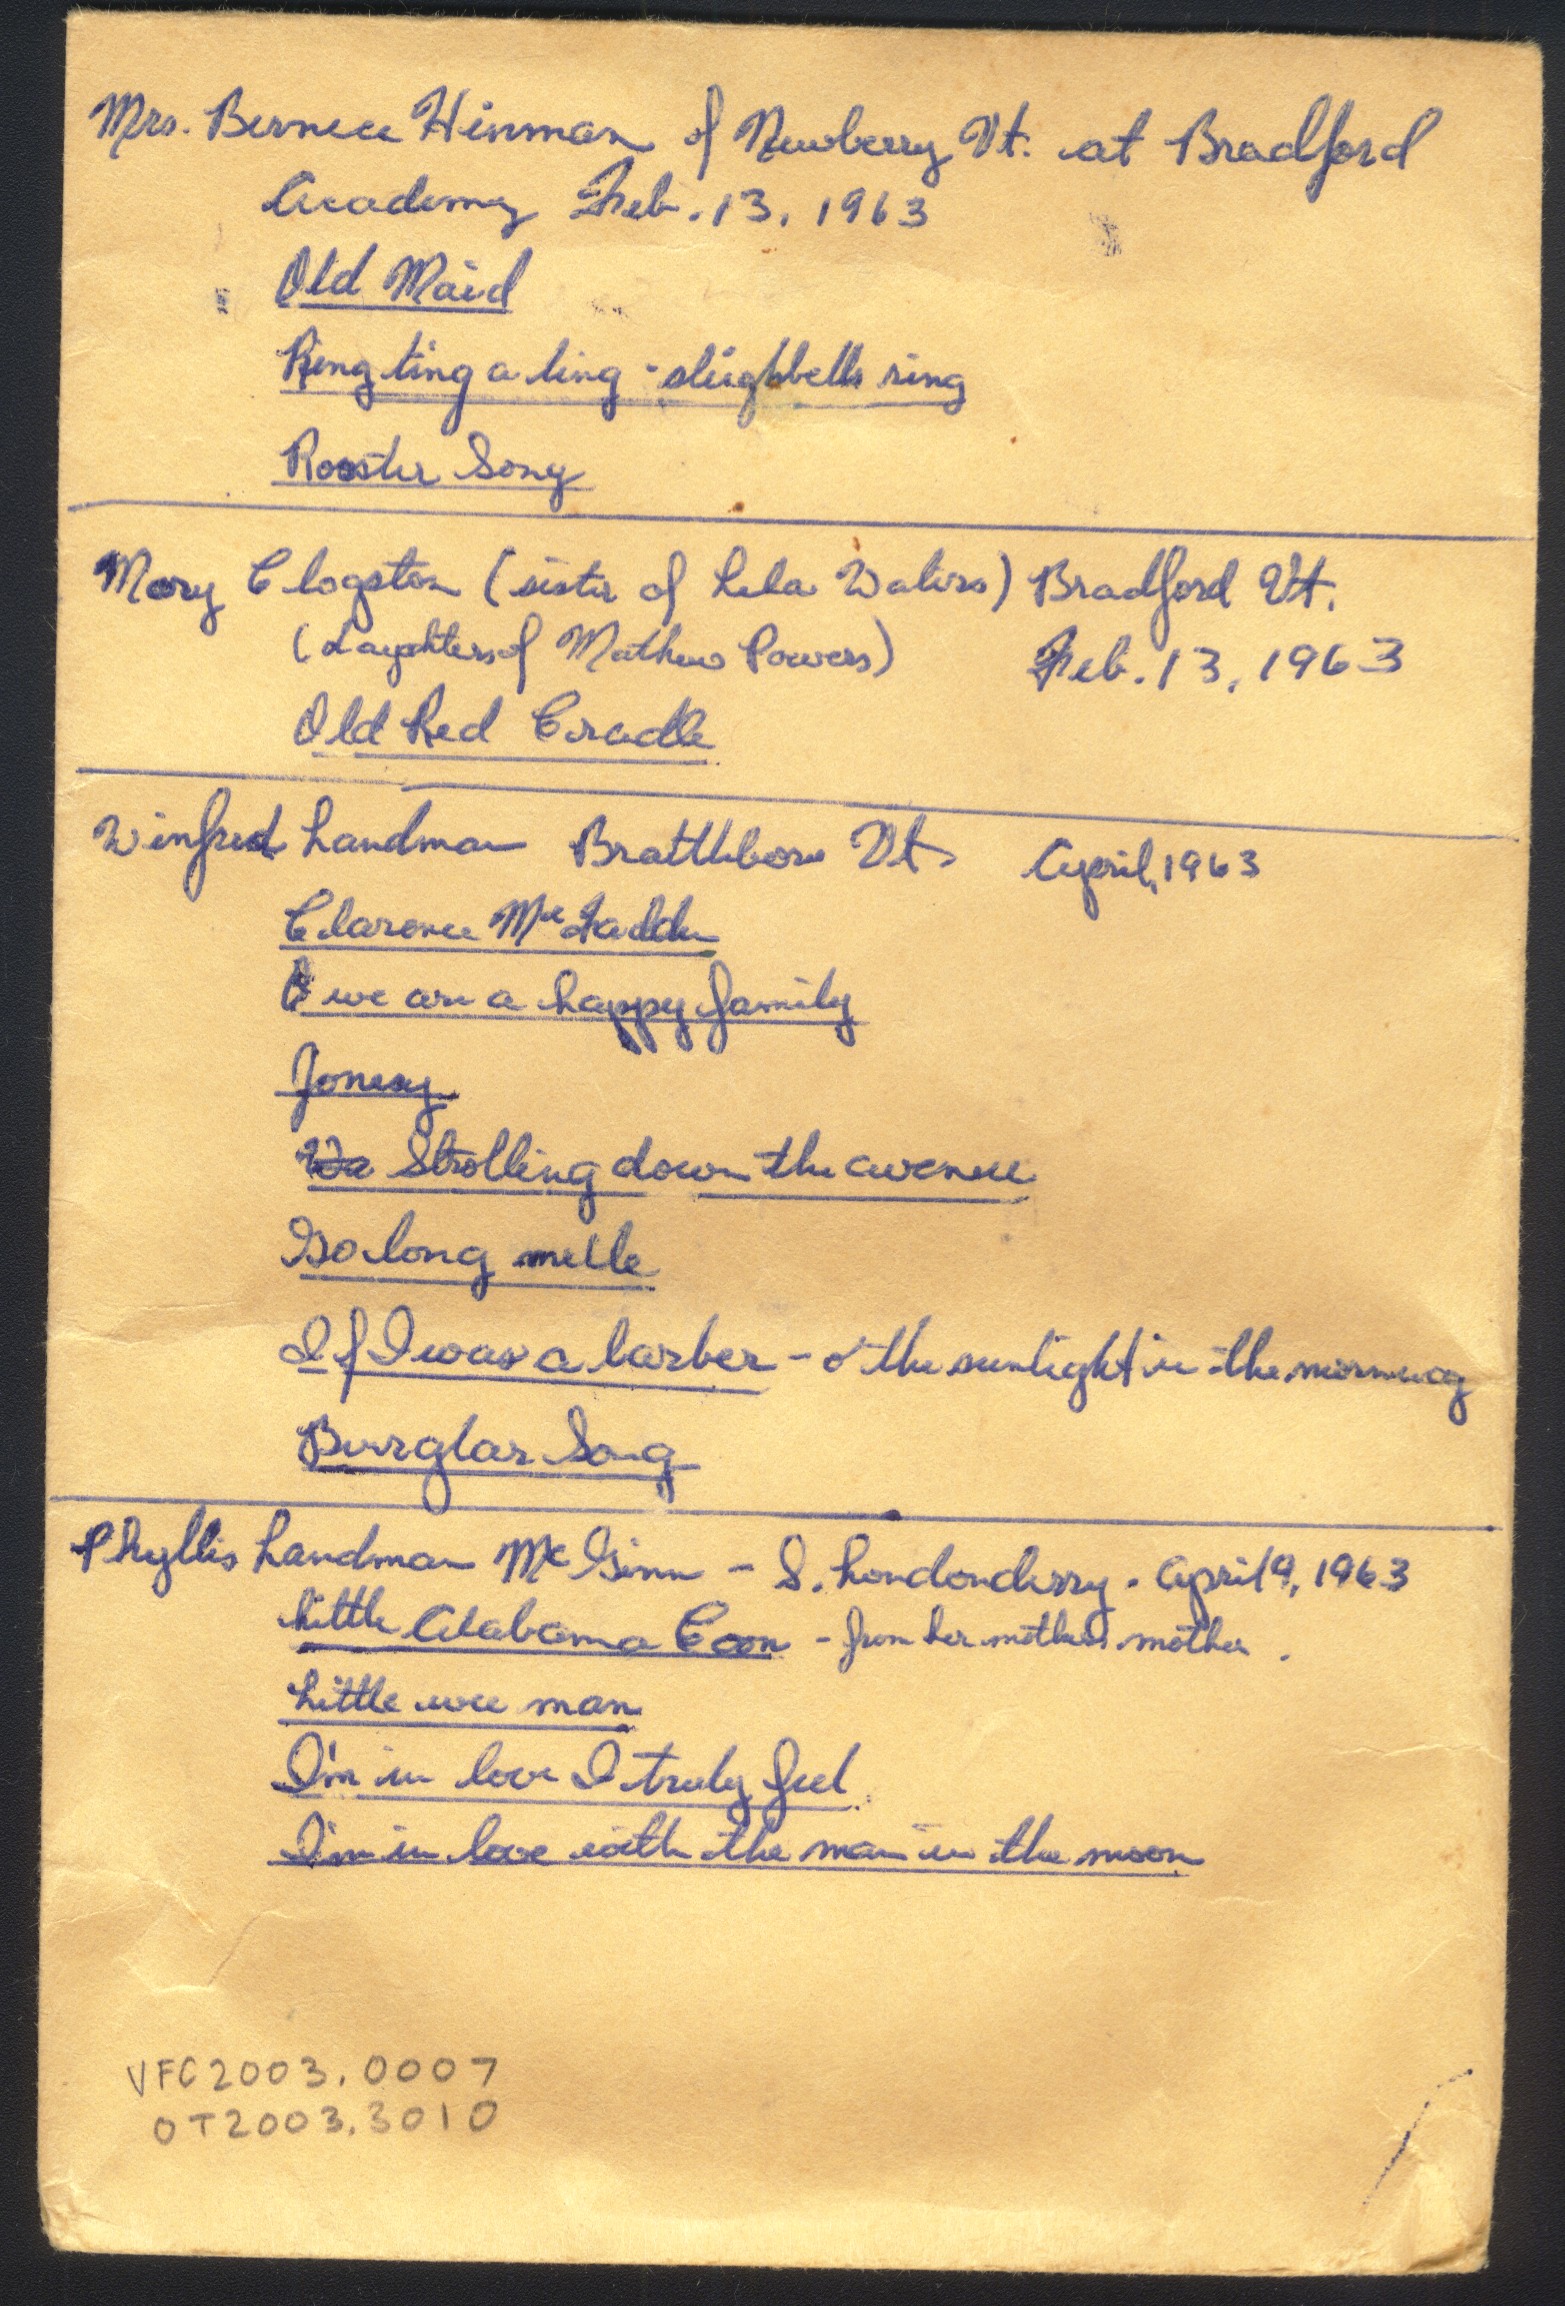 Mrs. Bernice Hinman of Newberry Vt. at Bradford
Academy Feb. 13, 1963
Old Maid
Ring ting a ling - sleighbells ring
Rooster Song
Mary Clogston (sister of Lela Waters) Bradford Vt.
(daughters of Mathew Powers) Feb. 13, 1963
Old Red Cradle
Winfred Landman Brattleboro Vt. April, 1963
Clarence McFadden
O we are a happy family
Jonesy
Strolling down the avenue
So long
If I was a barber - o' the sunlight in the morning
Burglar Song
Phyllis Landman McGinn - S. Londonderry. April 9, 1963
Little Alabama Coon - from her mother's mother.
Little wee man
I'm in love I truly feel
I'm in love with the man in the moon
VFC2003.0007
OT2003.3010